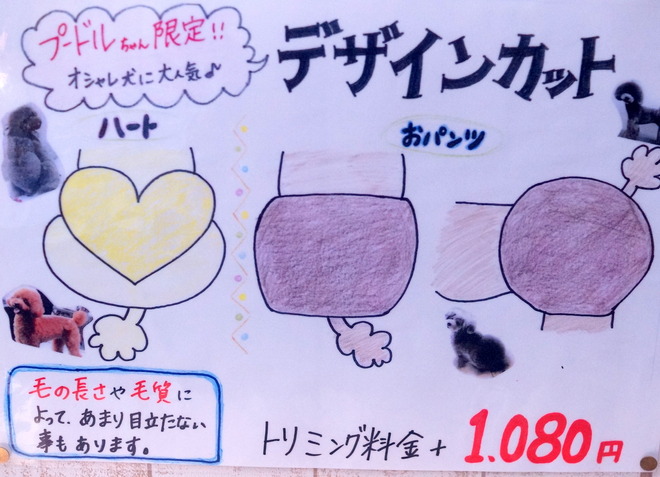 プードルちゃん限定!!
オシャレ犬に大人気♪
デザインカット
ハート
おパンツ
毛の長さや毛質に
よって、あまり目立たない
事もあります。
トリミング料金+1.080円